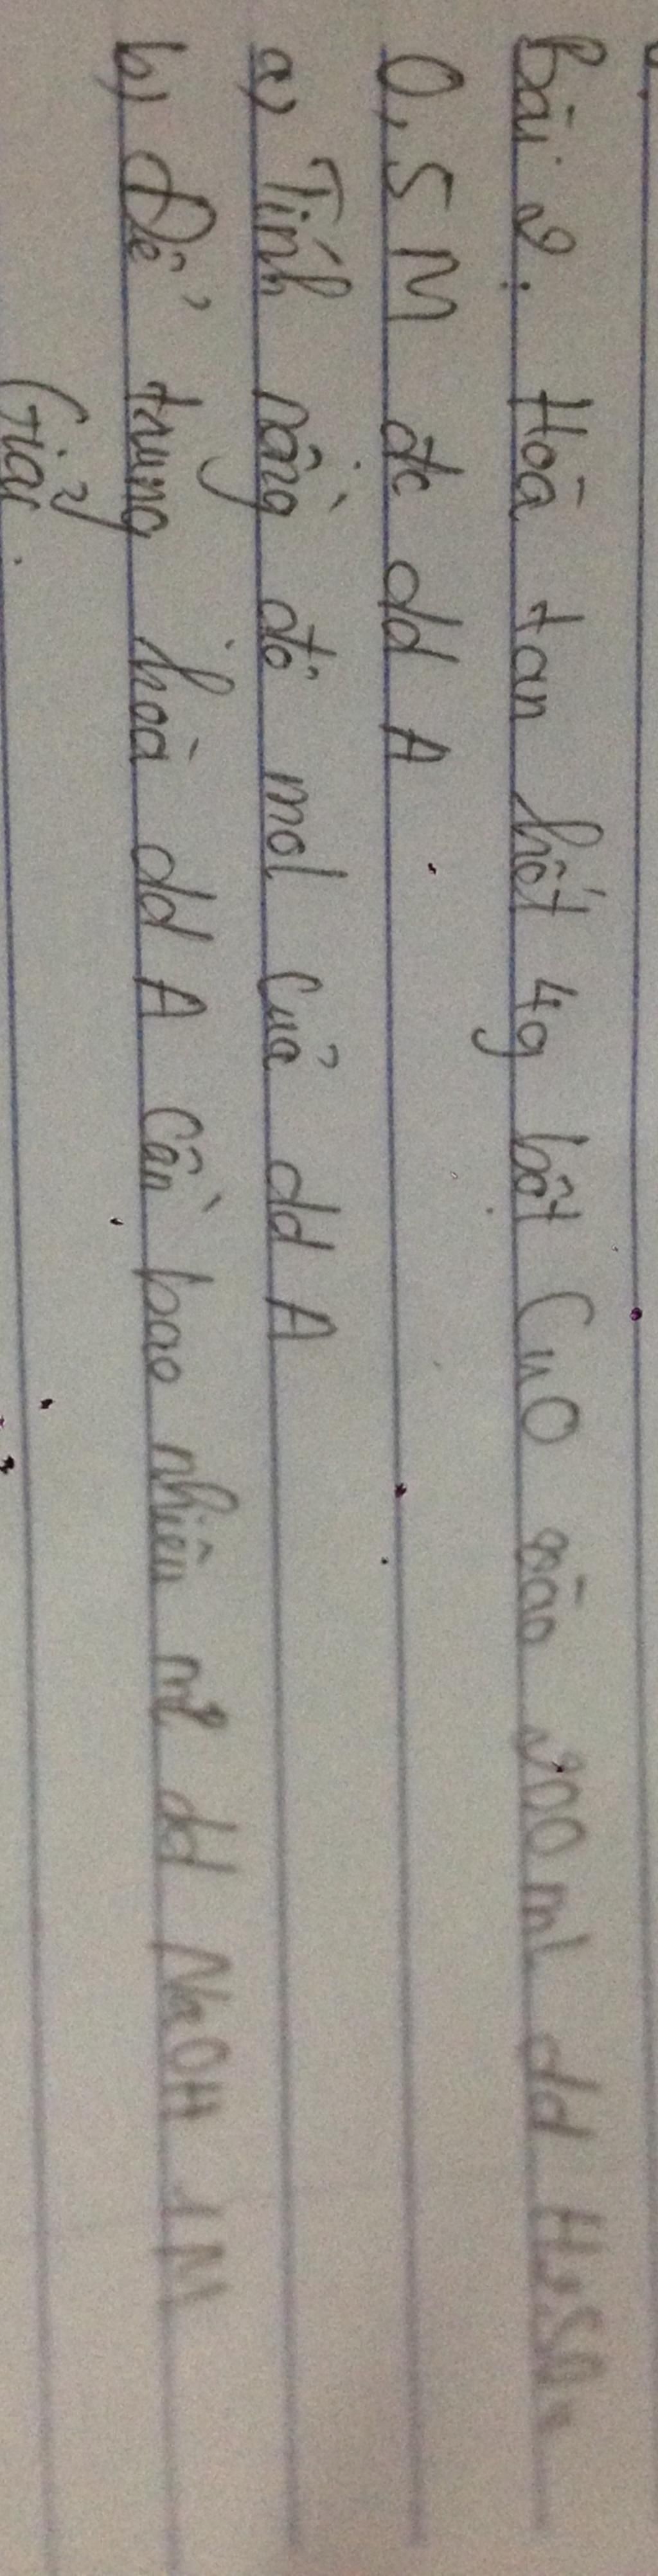 Bài 2: Hoà tan hết 4g bột CuO vào 200ml dd H₂SO₄
0,5M đc dd A
a) Tính nồng độ mol của dd A
b) Để trung hoà dd A cần bao nhiêu ml dd NaOH 1M
Giải.